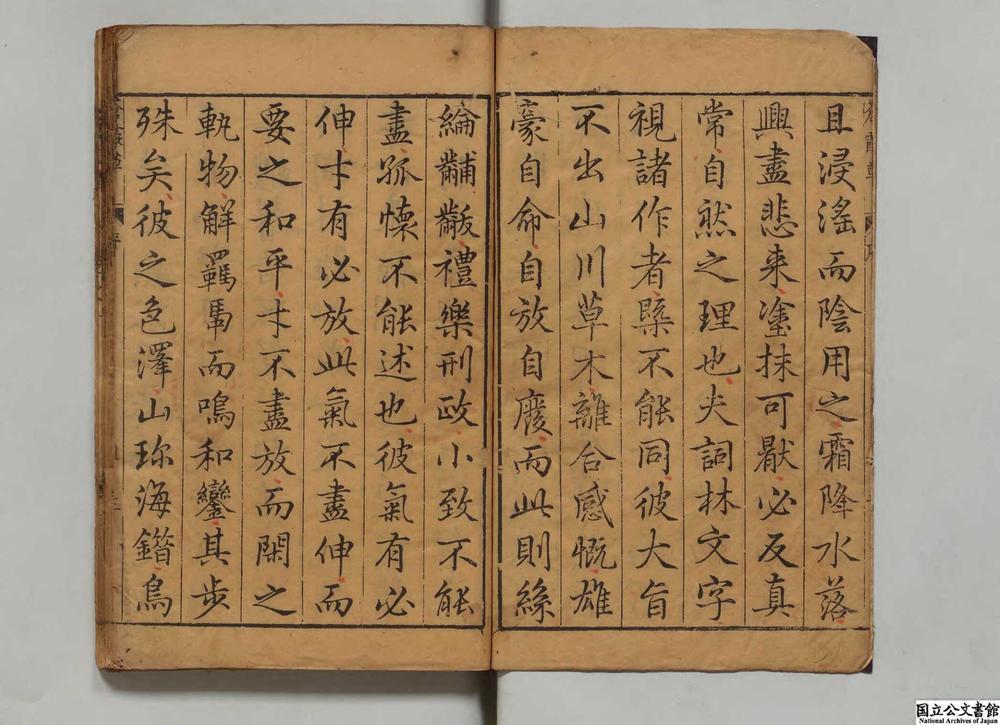 且浸淫而陰用之霜降水落
興盡悲来塗抹可厭必反真
常自然之理也夫詞林文字
視諸作者槩不能同彼大旨
不出山川草木離合感慨雄
豪自命自放自廢而此則絲
綸黼黻禮樂刑政小致不能
盡孤懷不能述也彼氣有必
伸才有必放此氣不盡伸而
要之和平才不盡放而閑之
軌物觧羈馬而鳴和鑾其步
殊矣彼之色澤山珎海錯烏
国立公文書館
National Archives of Japan